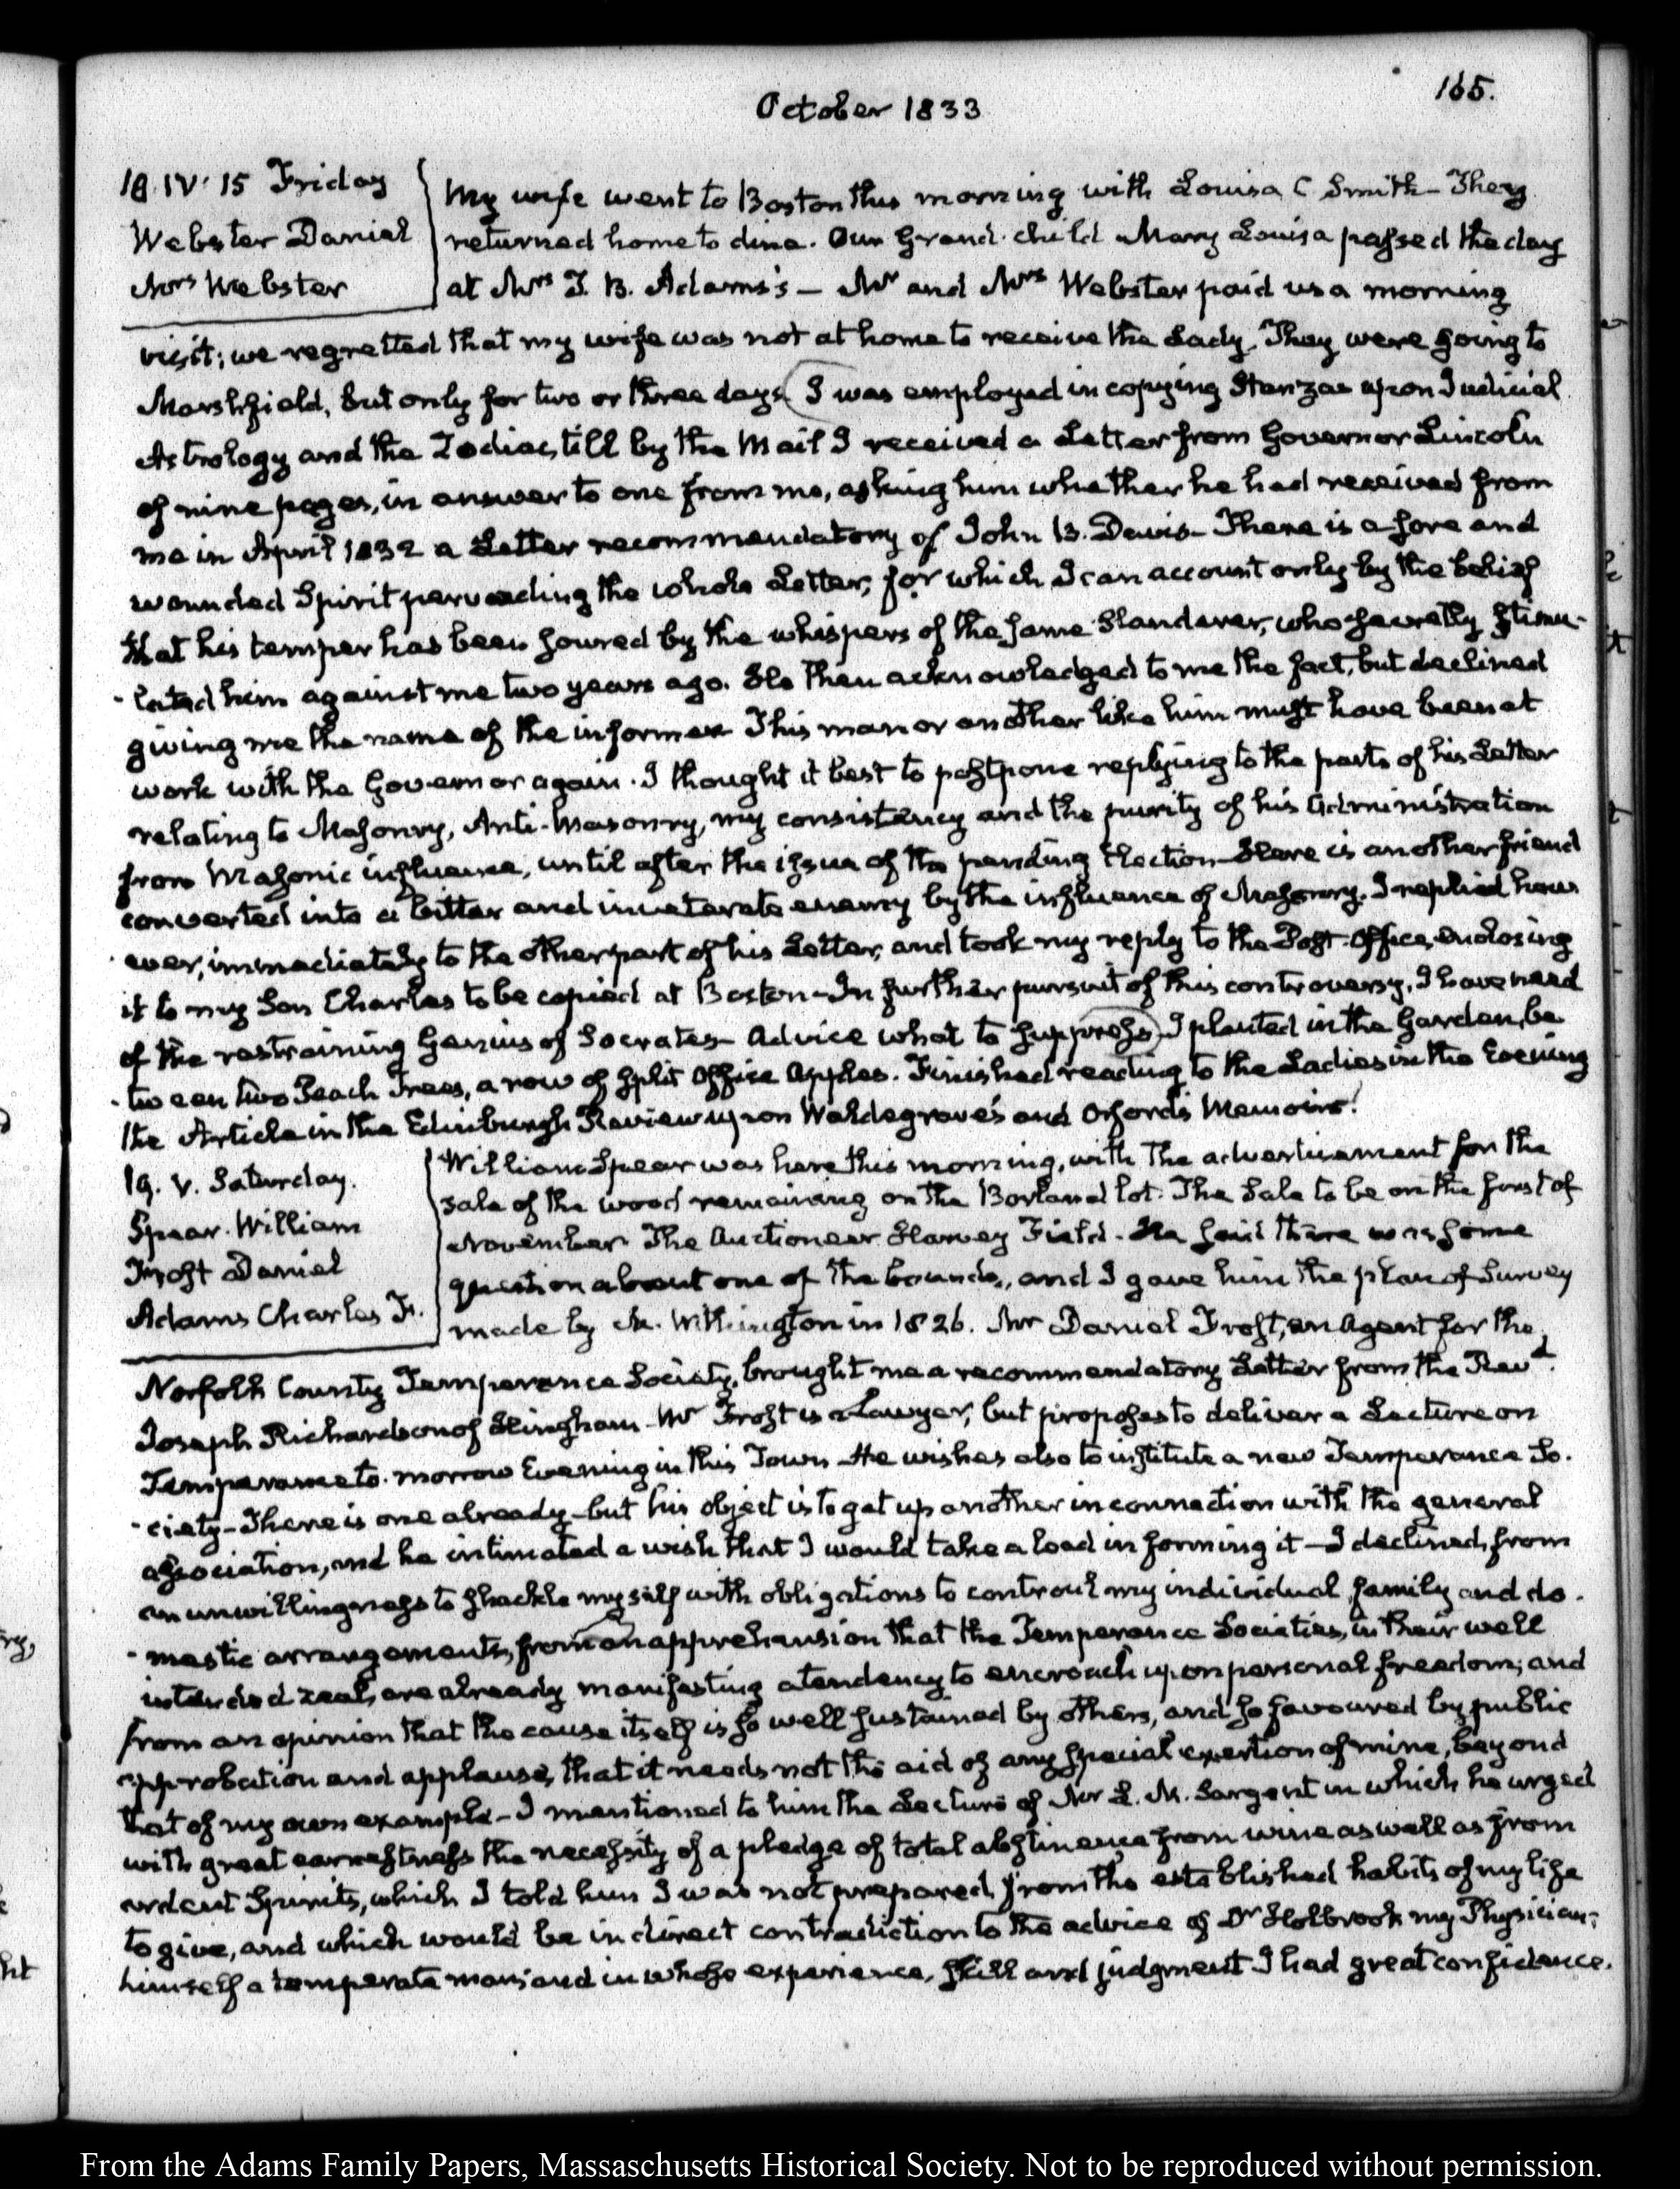 October 1833
165.
18. IV. 15 Friday
Webster Daniel
Mrs Webster
My wife went to Boston this morning with Louisa C Smith - They
returned home to dine. Our Grand-child Mary Louisa passed the day
at Mrs T. B. Adams's — Mr and Mrs Webster paid us a morning
visit; we regretted that my wife was not at home to receive the Lady. They were going to
Marshfield, but only for two or three days. I was employed in copying Stanzas upon Judicial
Astrology and the Zodiac, till by the Mail I received a Letter from Governor Lincoln
of nine pages, in answer to one from me, asking him whether he had received from
me in April 1832 a Letter recommendatory of John B. Davis - There is a sore and
wounded Spirit pervading the whole Letter, for which I can account only by the belief
that his temper has been soured by the whispers of the same Slanderer, who secretly stimu-
-lated him against me two years ago. He then acknowledged to me the fact, but declined
giving me the name of the informer. This man or another like him must have been at
work with the Governor again. I thought it best to postpone replying to the parts of his Letter
relating to Masonry, Anti-Masonry, my consistency and the purity of his Administration
from Masonic influence, until after the issue of the pending Election - Here is another friend
converted into a bitter and inveterate enemy by the influence of Masonry. I replied how
ever, immediately to the other part of his Letter, and took my reply to the Post-Office, enclosing
it to my Son Charles to be copied at Boston - In further pursuit of this controversy, I have need
of the restraining Genius of Socrates - Advice what to suppress. I planted in the Garden, be
-tween two Peach Trees, a row of split Office Apples. Finished reading to the Ladies in the Evening
the Article in the Edinburgh Review upon Waldegrave's and Orford's Memoirs.
19. V. Saturday.
Spear William
Frost Daniel
Adams Charles F.
William Spear was here this morning, with the advertisement for the
sale of the wood remaining on the Borland lot. The Sale to be on the first of
November. The Auctioneer Harvey Field. He said there was some
question about one of the bounds, and I gave him the plan of Survey
made by M. Withington in 1826. Mr Daniel Frost, an Agent for the
Norfolk County Temperance Society, brought me a recommendatory Letter from the Revd.
Joseph Richardson of Hingham. Mr Frost is a Lawyer, but proposes to deliver a Lecture on
Temperance to-morrow Evening in this Town - He wishes also to institute a new Temperance So-
-ciety - There is one already - but his object is to get up another in connection with the general
association, and he intimated a wish that I would take a lead in forming it — I declined, from
an unwillingness to shackle myself with obligations to controul my individual, family and do-
-mestic arrangements, from an apprehension that the Temperance Societies, in their well
intended zeal, are already manifesting a tendency to encroach upon personal freedom; and
from an opinion that the cause itself is so well sustained by others, and so favoured by public
approbation and applause, that it needs not the aid of any special exertion of mine, beyond
that of my own example - I mentioned to him the Lecture of Mr L. M. Sargent in which he urged
with great earnestness the necessity of a pledge of total abstinence from wine as well as from
ardent Spirits, which I told him I was not prepared, from the established habits of my life
to give, and which would be in direct contradiction to the advice of Dr Holbrook my Physician;
himself a temperate man; and in whose experience, skill and judgment I had great confidence.
From the Adams Family Papers, Massachusetts Historical Society. Not to be reproduced without permission.